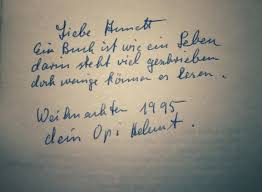 Liebe
Ein Buch ist wie ein Leben
darin steht viel geschrieben
doch wenige können es lesen.
Weihnachten 1995
dein Opi Helmut.